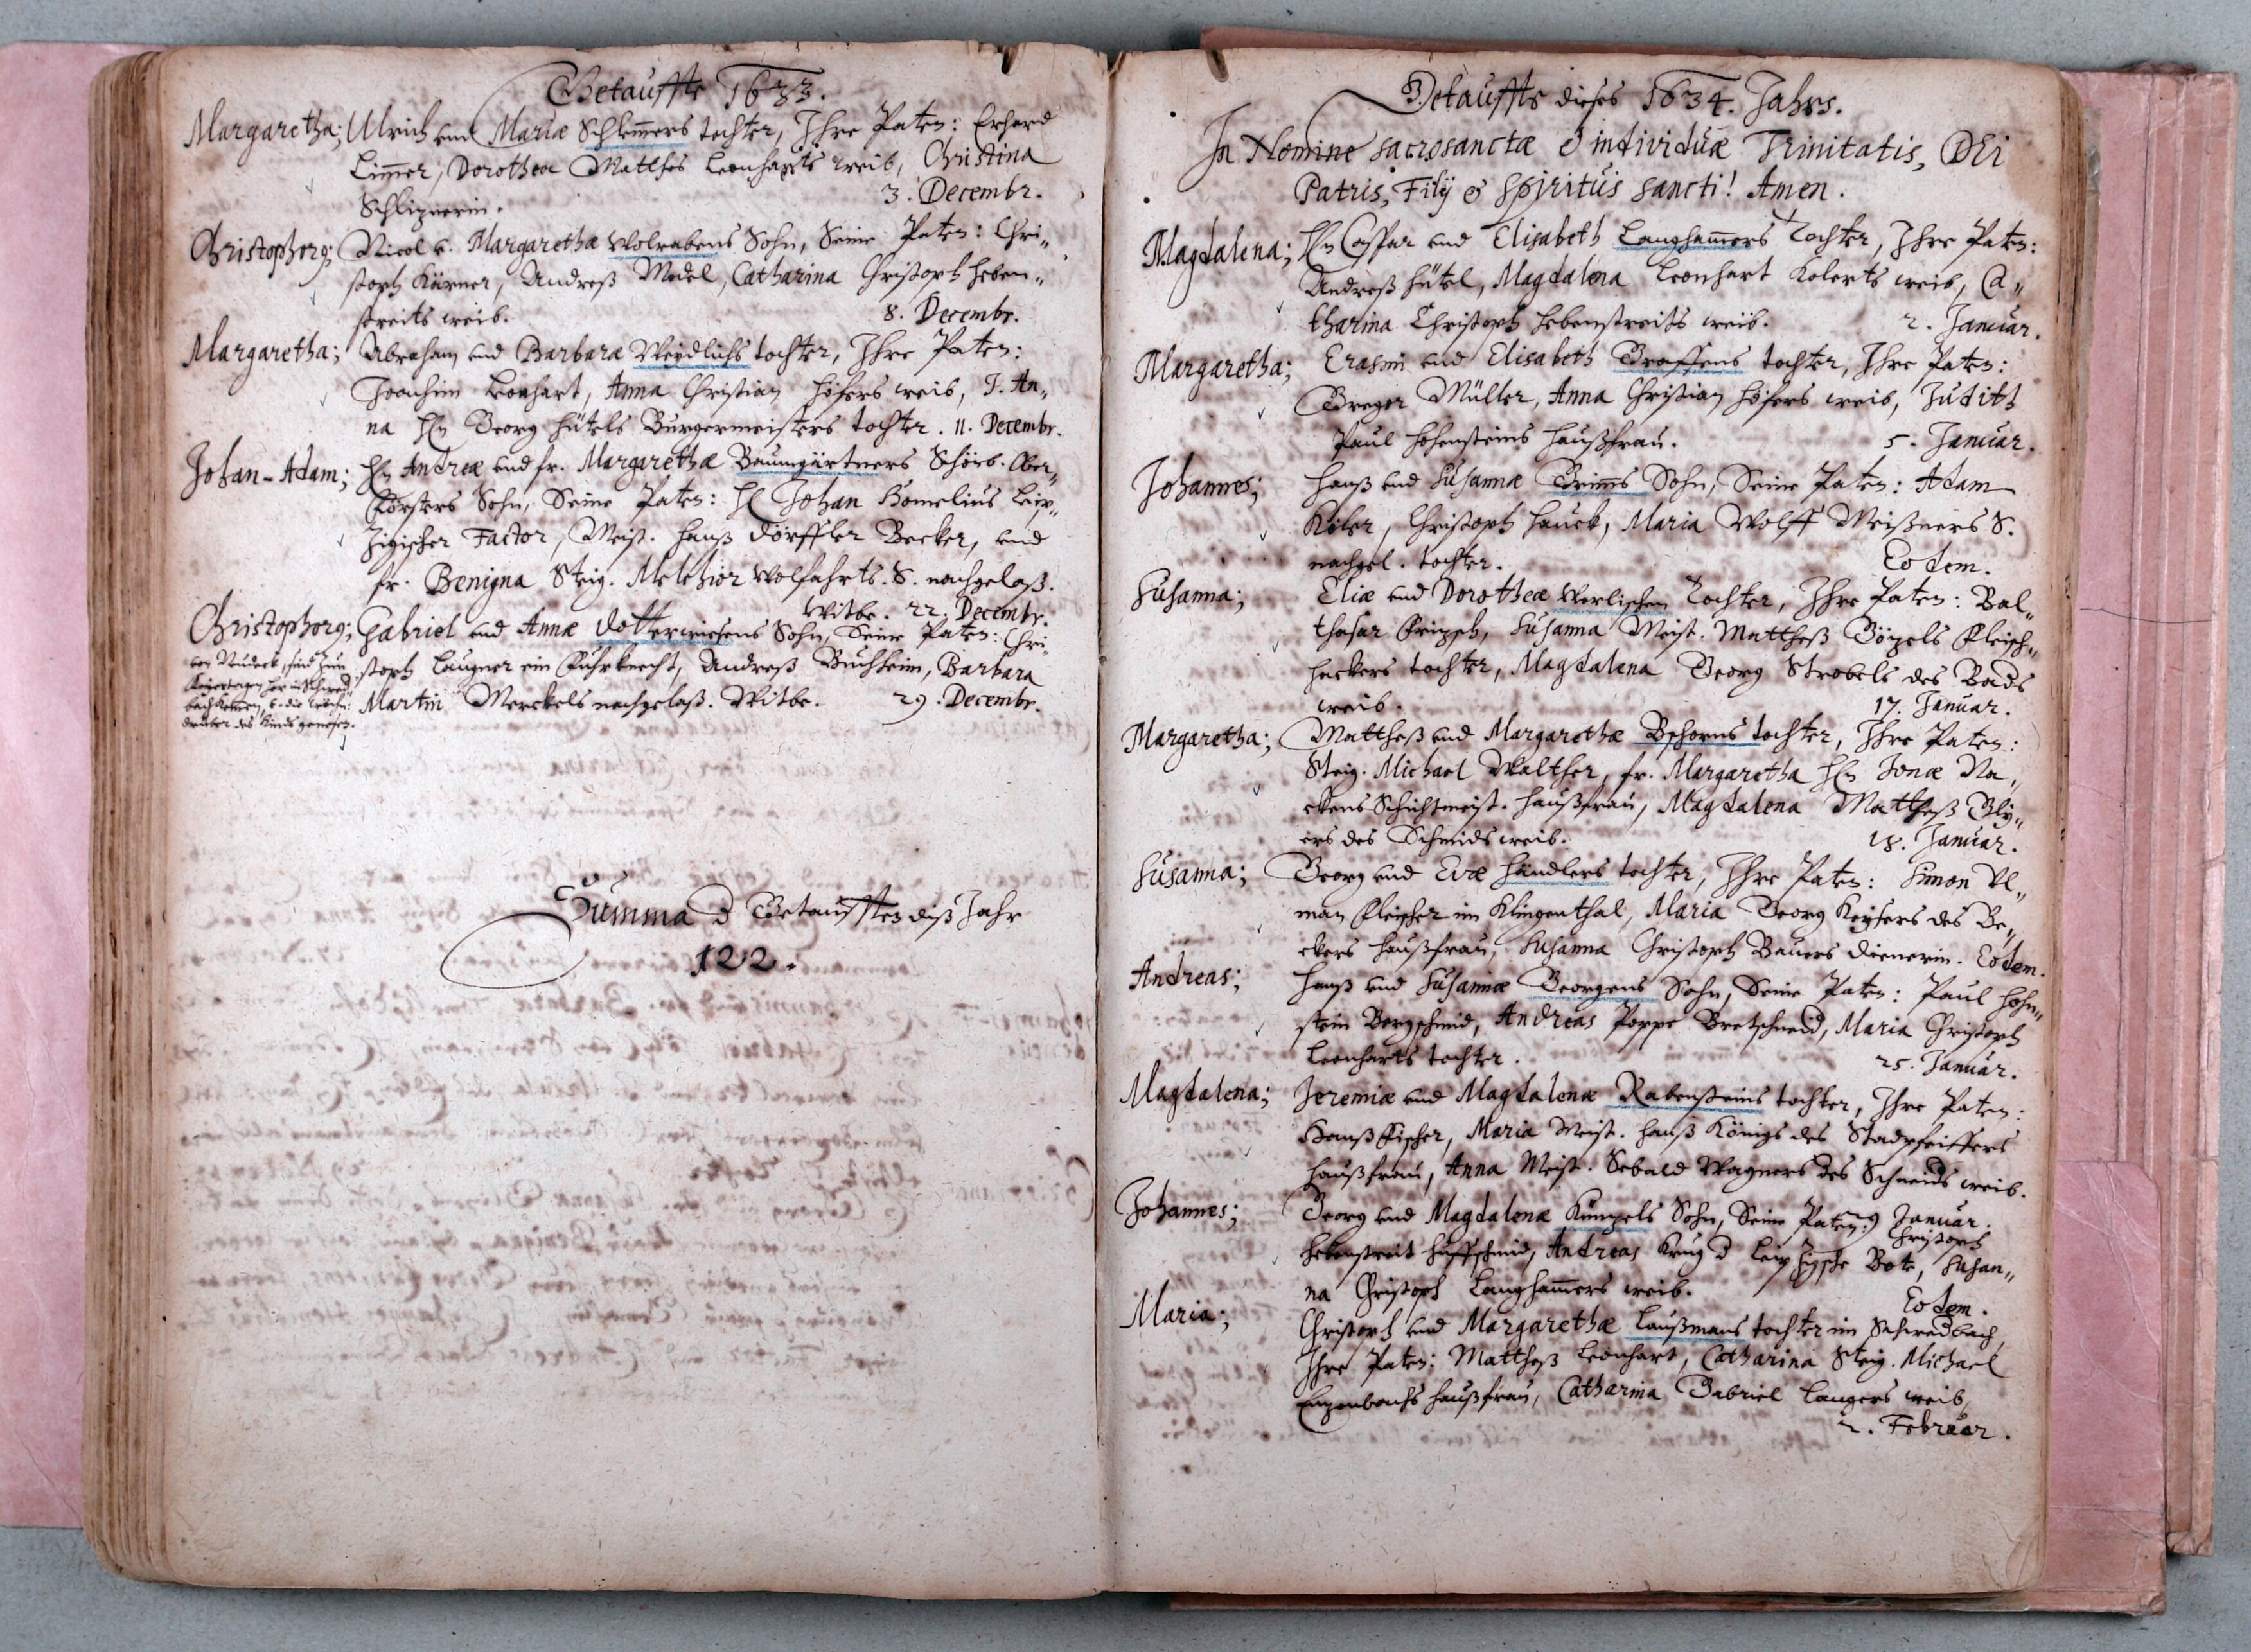 Getauffte 1633.
Margaretha; Ulrich und Mariæ Schlem̄ers tochter, Ihre Paten: Erhard
Lim̄er, Dorothea Matthes Leonharts weib, Christina
3. Decembr.
Christophorg; Nicol u. Margarethæ Wolrabens Sohn, Seine Paten: Chri„
stoph Körner, Andreß Model, Catharina Christoph Heben„
streits weib. 8. Decembr.
Margaretha; Abraham und Barbaræ Weydlichs tochter, Ihre Paten:
Joachim Leonhart, Anna Christian Höfers weib, J. An„
na Hn Georg Hütels Burgermeisters tochter. 11. Decembr.
Johan-Adam; Hn Andreæ und fr. Margarethæ Baumgärtners Schönb. Ober„
försters Sohn, Seine Paten: H Johan Cornelius Leip„
zigischer Factor, Meist. Hanß Dörffler Becker, und
fr. Benigna Steig. Melchior Wolfahrts. S. nachgelaß.
Witbe. 22. Decembr.
Christophorg; Gabriel und Annæ Dotterwiesens Sohn, Seine Paten: Chri„
stoph Laugner ein Fuhrknecht, Andreß Buchheim, Barbara
Martin Merckels nachgelaß. Witbe. 29. Decembr.
von Neudeck, sind zun
Feyertagen her in Schwad
bach kom̄en, u. die
drüber des Kinds genesen.
Summa d Getaufften diß Jahr
122.
Getauffte dieses 1634. Jahrs.
In Nomine sacrosanctæ & individuæ Trinitatis, DEi
Patris, Filij & Spiritus sancti! Amen.
Magdalena; Hn Caspar und Elisabeth Langham̄ers Tochter, Ihre Paten:
Andreß Hütel, Magdalena Leonhart Kolerts weib, Ca„
tharina Christoph Hebenstreits weib. 2. Januar.
Margaretha; Erasmi und Elisabeth Graffens tochter, Ihre Paten:
Greger Müller, Anna Christian Höfers weib, Judith
Paul Hohensteins Haußfrau. 5. Januar.
Johannes; Hanß und Susannæ Grim̄s Sohn, Seine Paten: Adam
Köler, Christoph Hauck, Maria Wolff Meißners S.
nachgel. tochter. Eodem.
Susanna; Eliæ und Dorotheæ Werlischen Tochter, Ihre Paten: Bal„
thasar Fritzsch, Susanna Meist. Mattheß Götzels Fleisch„
hackers tochter, Magdalena Georg Strobels des Bads
weib. 17. Januar.
Margaretha; Mattheß und Margarethæ Bschorns tochter, Ihre Paten:
Steig. Michael Walther, fr. Margaretha Hn Jonæ Na„
ckens Schichtmeist. Haußfrau, Magdalena Mattheß Gly„
ers des Schmids weib. 18. Januar.
Susanna; Georg und Evæ Händlers tochter, Ihre Paten: Simon Ul„
man Fleischer im Klingenthal, Maria Georg Keysers des Be„
ckers Haußfrau, Susanna Christoph Bauers dienerin. Eodem.
Andreas; Hanß und Susannæ Georgens Sohn, Seine Paten: Paul Hohn„
stein Bergschmid, Andreas Poppe Bretschneid, Maria Christoph
Leonharts tochter. 25. Januar.
Magdalena; Jeremiæ und Magdalenæ Rabensteins tochter, Ihre Paten:
Hanß Fischer, Maria Meist. Hanß Königs des Stadpfeiffers
Haußfrau, Anna Meist. Sebald Wagners des Schneids weib.
Januar.
Johannes; Georg und Magdalenæ Küntzels Sohn, Seine Paten: Christoph
Hebenstreit Huffschmid, Andreas Krug d Leipzigsche Bote, Susan„
na Christoph Langham̄ers weib. Eodem.
Maria; Christoph und Margarethæ Laußmans tochter im Schwadbach,
Ihre Paten: Mattheß Leonhart, Catharina Steig. Michael
Entzenbachs Haußfrau, Catharina Gabriel Langers weib,
2. Februar.